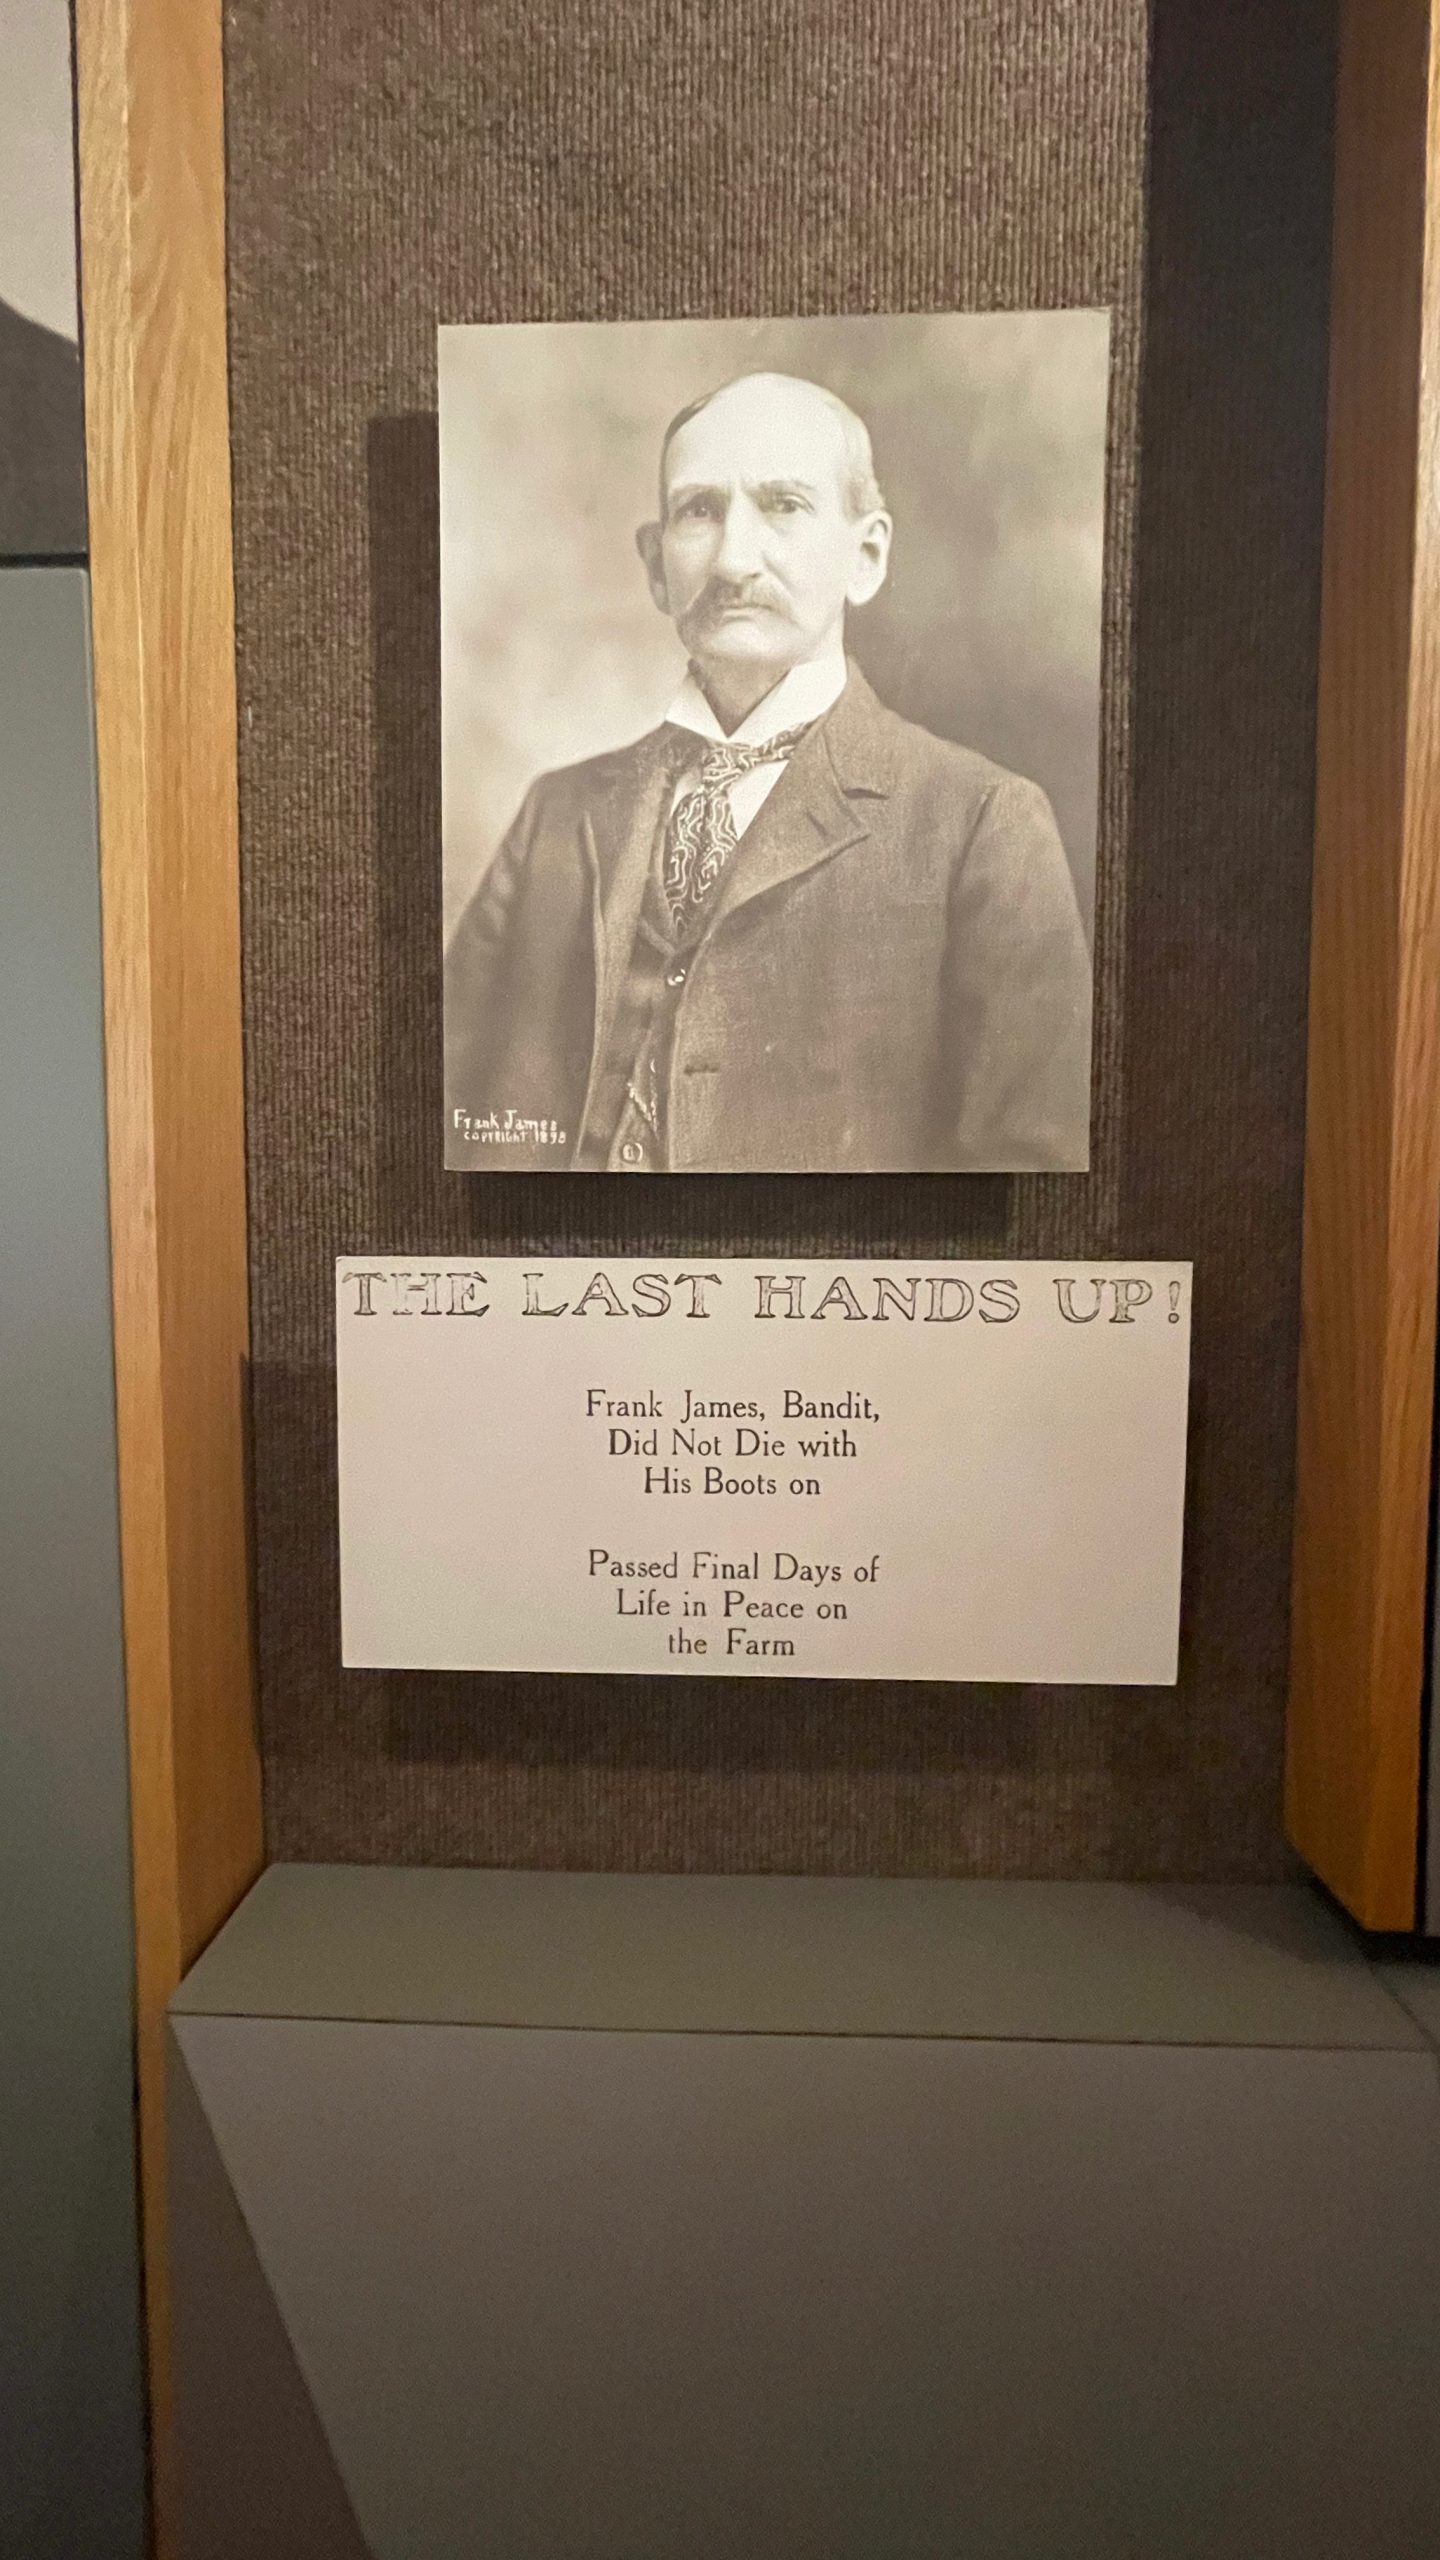 Frank James
COPYRIGHT 1898
THE LAST HANDS UP!
Frank James, Bandit,
Did Not Die with
His Boots on
Passed Final Days of
Life in Peace on
the Farm